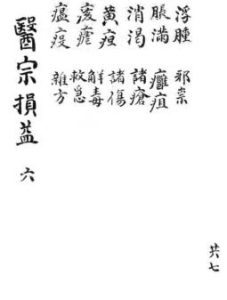 浮腫
脹滿
消渴
黃疸
痎瘧
瘟疫
邪祟
癰疽
諸瘡
諸傷
解毒
救急
雜方
醫宗損益 六
共七